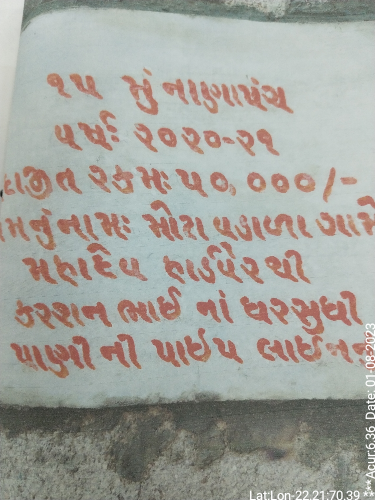 ૧૫ મું નાણાપંચ
વર્ષઃ ૨૦૨૦-૨૧
રકમઃ ૫૦,૦૦૦/-
મોટા વડાળા ગામે
મહાદેવ હાર્ડવેરથી
કરશન ભાઈ નાં ઘરસુધી
પાણી ની પાઇપ
Lat:Lon-22.21:70.39
***Acur:6.36 Date: 01-08-2023